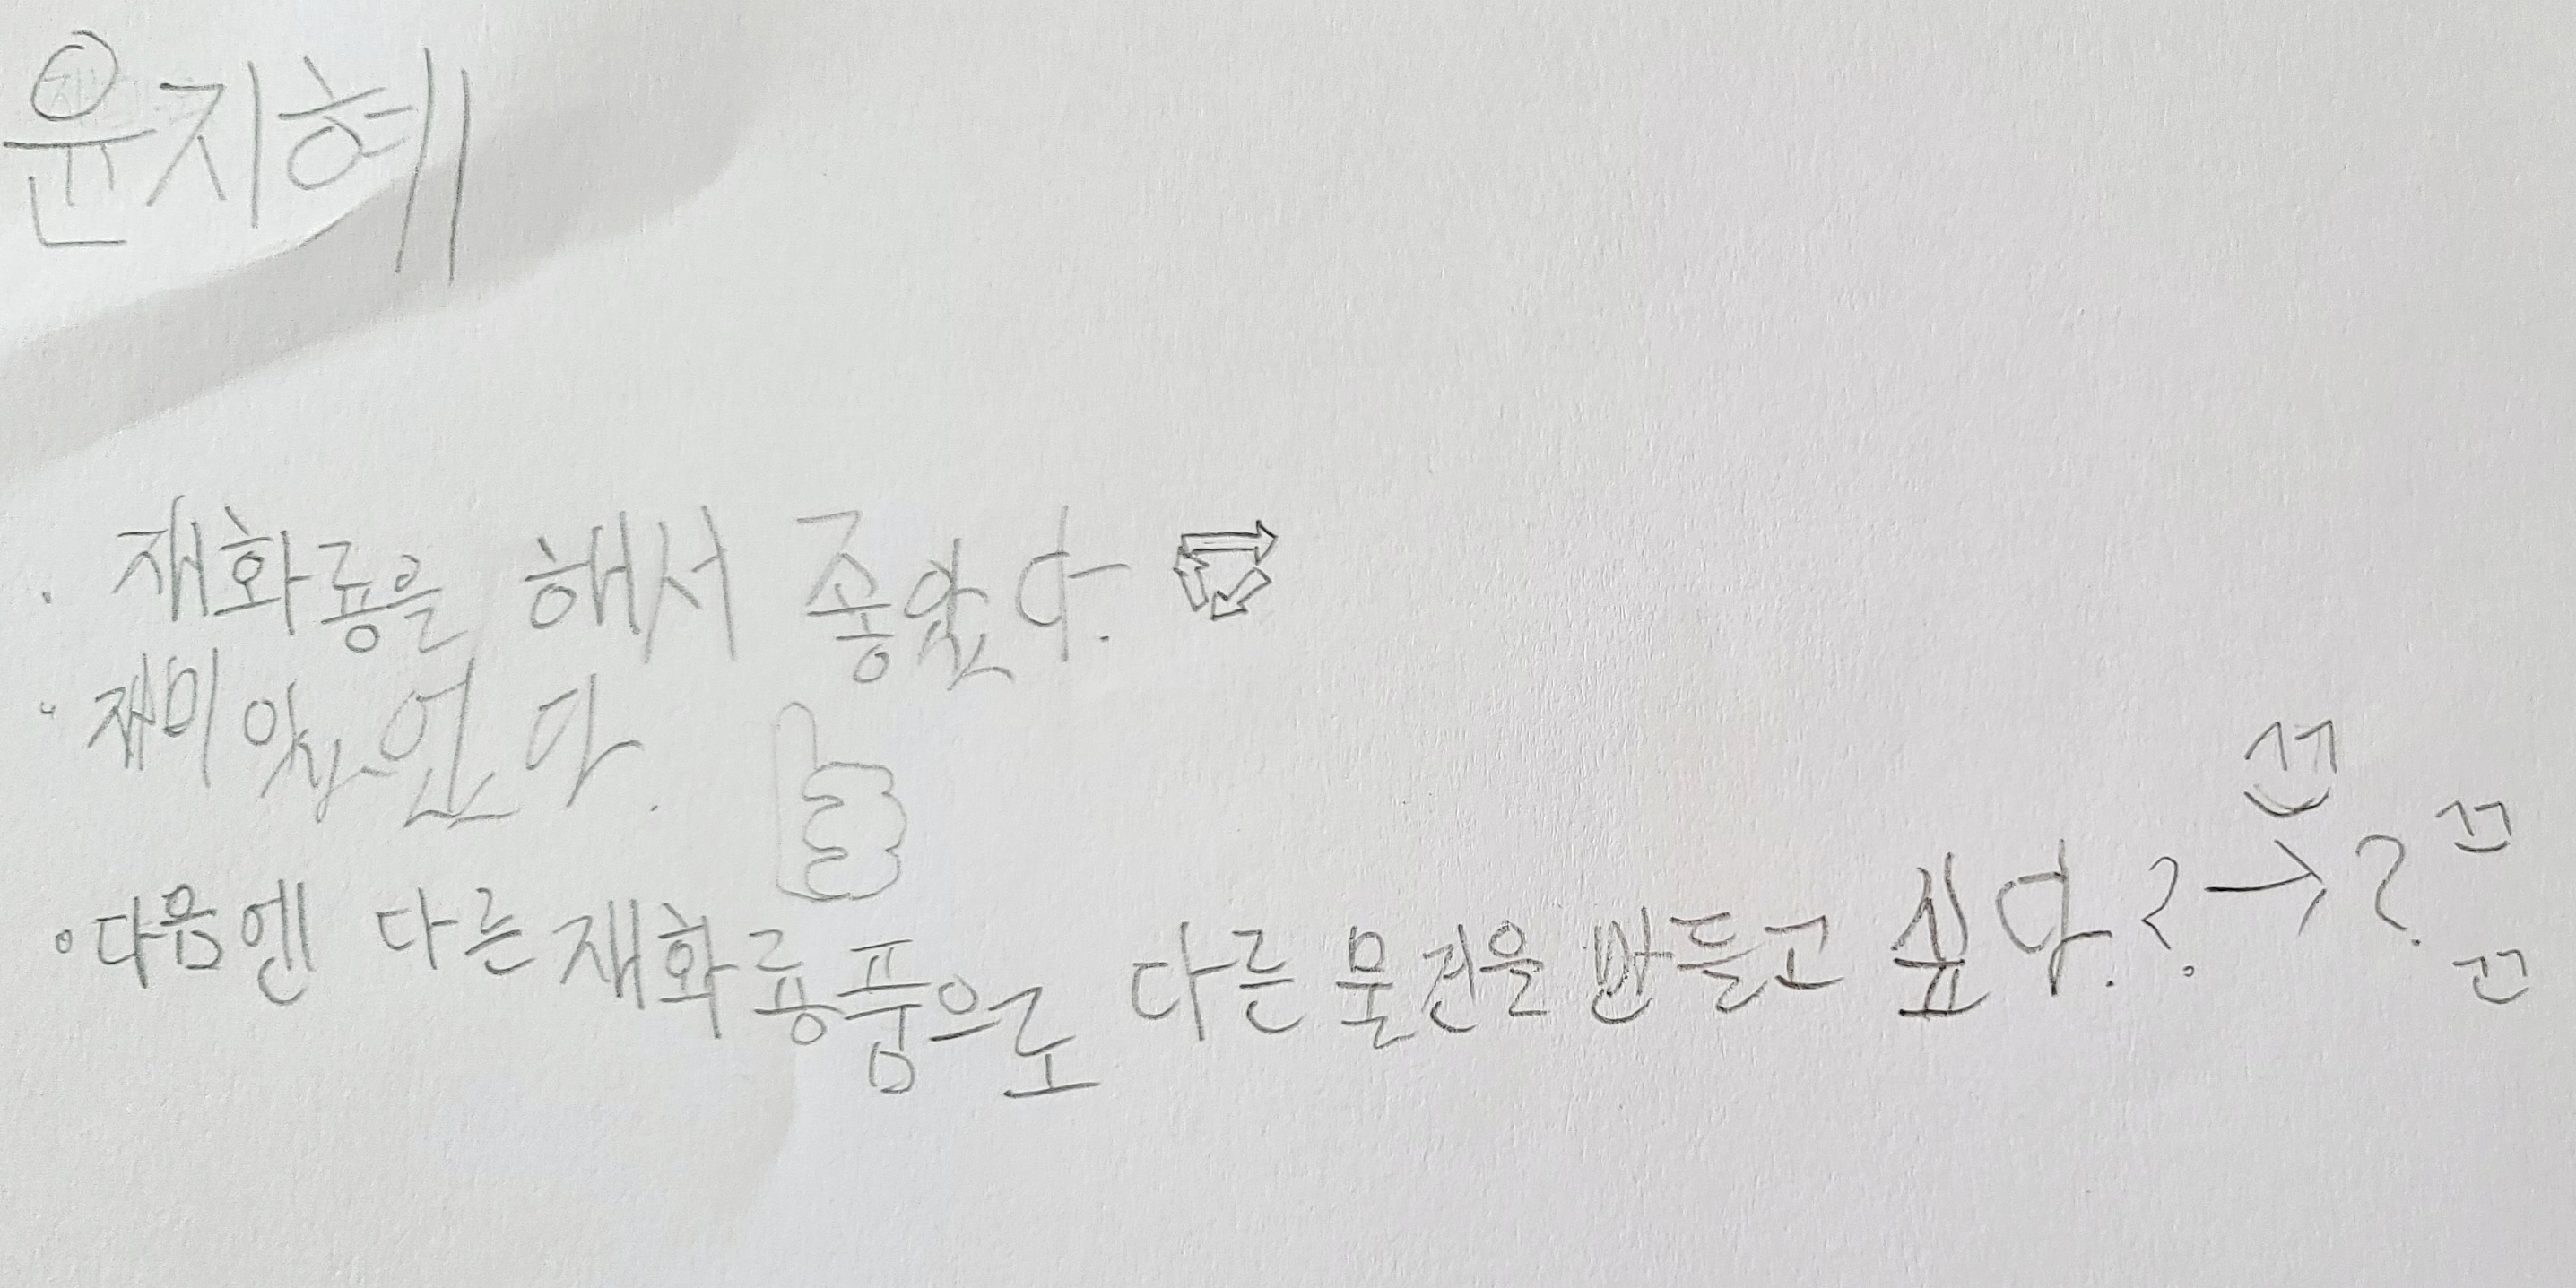 윤지혜
· 재화룡을 해서 좋았다.
· 재미 있었다.
· 다음엔 다른 재화룡품으로 다른 물건을 만들고 싶다. ? → ?